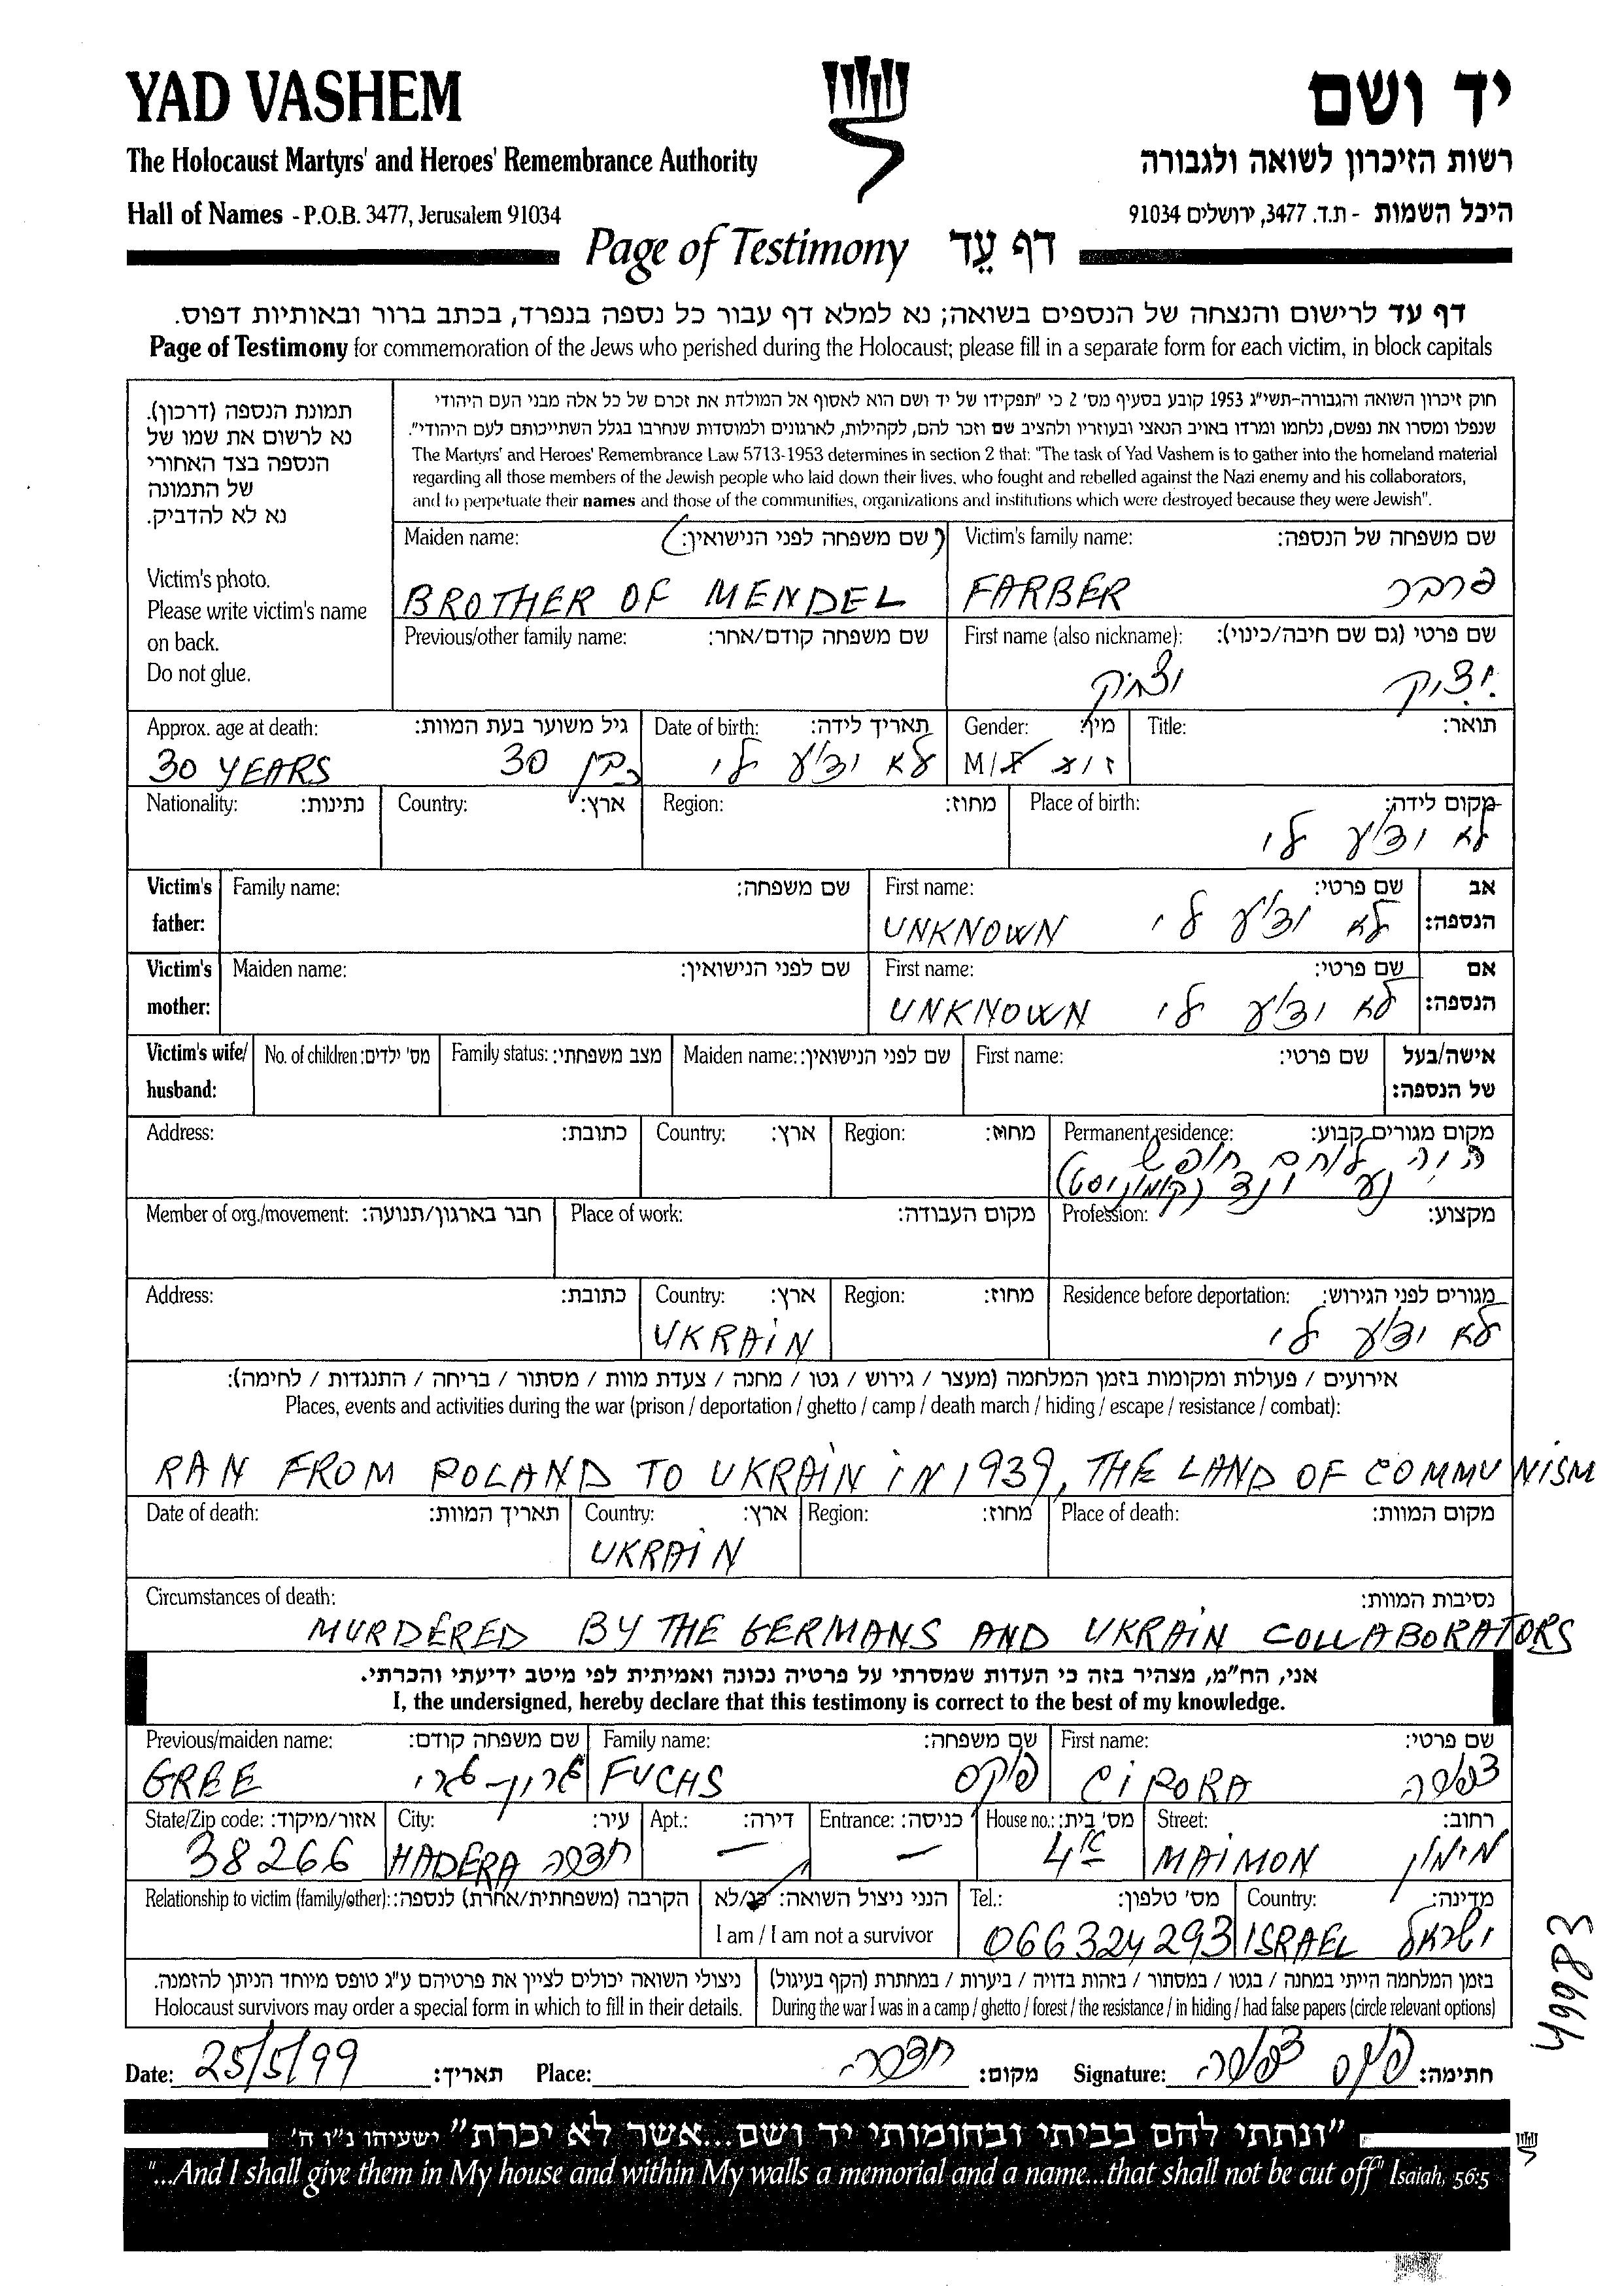 YAD VASHEM
יד ושם
The Holocaust Martyrs' and Heroes' Remembrance Authority
רשות הזיכרון לשואה ולגבורה
Hall of Names - P.O.B. 3477, Jerusalem 91034
היכל השמות - ת.ד. 3477, ירושלים 91034
Page of Testimony דף עֵד
דף עד לרישום והנצחה של הנספים בשואה; נא למלא דף עבור כל נספה בנפרד, בכתב ברור ובאותיות דפוס.
Page of Testimony for commemoration of the Jews who perished during the Holocaust; please fill in a separate form for each victim, in block capitals
תמונת הנספה (דרכון).
נא לרשום את שמו של
הנספה בצד האחורי
של התמונה
נא לא להדביק.
Victim's photo.
Please write victim's name
on back.
Do not glue.
חוק זיכרון השואה והגבורה-תשי"ג 1953 קובע בסעיף מס' 2 כי "תפקידו של יד ושם הוא לאסוף אל המולדת את זכרם של כל אלה מבני העם היהודי
שנפלו ומסרו את נפשם, נלחמו ומרדו באויב הנאצי ובעוזריו ולהציב שם וזכר להם, לקהילות, לארגונים ולמוסדות שנחרבו בגלל השתייכותם לעם היהודי".
The Martyrs' and Heroes' Remembrance Law 5713-1953 determines in section 2 that: "The task of Yad Vashem is to gather into the homeland material
regarding all those members of the Jewish people who laid down their lives, who fought and rebelled against the Nazi enemy and his collaborators,
and to perpetuate their names and those of the communities, organizations and institutions which were destroyed because they were Jewish".
Maiden name: (שם משפחה לפני הנישואין:) Victim's family name: שם משפחה של הנספה:
BROTHER OF MENDEL FARBER פרבר
Previous/other family name: שם משפחה קודם/אחר: First name (also nickname): שם פרטי (גם שם חיבה/כינוי):
יצחק איציק
Approx. age at death: גיל משוער בעת המוות: Date of birth: תאריך לידה: Gender: מין: Title: תואר:
30 YEARS כבן 30 לא ידוע לי M/F ז/נ
Nationality: נתינות: Country: ארץ: Region: מחוז: Place of birth: מקום לידה:
לא ידוע לי
Victim's father: Family name: שם משפחה: First name: שם פרטי: אב הנספה:
UNKNOWN לא ידוע לי
Victim's mother: Maiden name: שם לפני הנישואין: First name: שם פרטי: אם הנספה:
UNKNOWN לא ידוע לי
Victim's wife/ husband: No. of children: מס' ילדים: Family status: מצב משפחתי: Maiden name: שם לפני הנישואין: First name: שם פרטי: אישה/בעל של הנספה:
Address: כתובת: Country: ארץ: Region: מחוז: Permanent residence: מקום מגורים קבוע:
היה לוחם חופש
נע ונד (קומוניסט)
Member of org./movement: חבר בארגון/תנועה: Place of work: מקום העבודה: Profession: מקצוע:
Address: כתובת: Country: ארץ: Region: מחוז: Residence before deportation: מגורים לפני הגירוש:
UKRAIN לא ידוע לי
אירועים / פעולות ומקומות בזמן המלחמה (מעצר / גירוש / גטו / מחנה / צעדת מוות / מסתור / בריחה / התנגדות / לחימה):
Places, events and activities during the war (prison / deportation / ghetto / camp / death march / hiding / escape / resistance / combat):
RAN FROM POLAND TO UKRAIN IN 1939, THE LAND OF COMMUNISM
Date of death: תאריך המוות: Country: ארץ: Region: מחוז: Place of death: מקום המוות:
UKRAIN
Circumstances of death: נסיבות המוות:
MURDERED BY THE GERMANS AND UKRAIN COLLABORATORS
אני, הח"מ, מצהיר בזה כי העדות שמסרתי על פרטיה נכונה ואמיתית לפי מיטב ידיעתי והכרתי.
I, the undersigned, hereby declare that this testimony is correct to the best of my knowledge.
Previous/maiden name: שם משפחה קודם: Family name: שם משפחה: First name: שם פרטי:
GREE FUCHS פוקס CIPORA צפורה
State/Zip code: אזור/מיקוד: City: עיר: Apt.: דירה: Entrance: כניסה: House no.: מס' בית: Street: רחוב:
38266 HADERA חדרה — — 4א MAIMON מימון
Relationship to victim (family/other): הקרבה (משפחתית/אחרת) לנספה: הנני ניצול השואה: כן/לא Tel.: מס' טלפון: Country: מדינה:
I am / I am not a survivor 066324293 ISRAEL ישראל
ניצולי השואה יכולים לציין את פרטיהם ע"ג טופס מיוחד הניתן להזמנה. בזמן המלחמה הייתי במחנה / בגטו / במסתור / בזהות בדויה / ביערות / במחתרת (הקף בעיגול)
Holocaust survivors may order a special form in which to fill in their details. During the war I was in a camp / ghetto / forest / the resistance / in hiding / had false papers (circle relevant options)
49983
Date: 25/5/99 תאריך: Place: חדרה מקום: Signature: פוקס צפורה חתימה:
"ונתתי להם בביתי ובחומותי יד ושם...אשר לא יכרת" ישעיהו נ"ו ה'
"...And I shall give them in My house and within My walls a memorial and a name...that shall not be cut off" Isaiah, 56:5